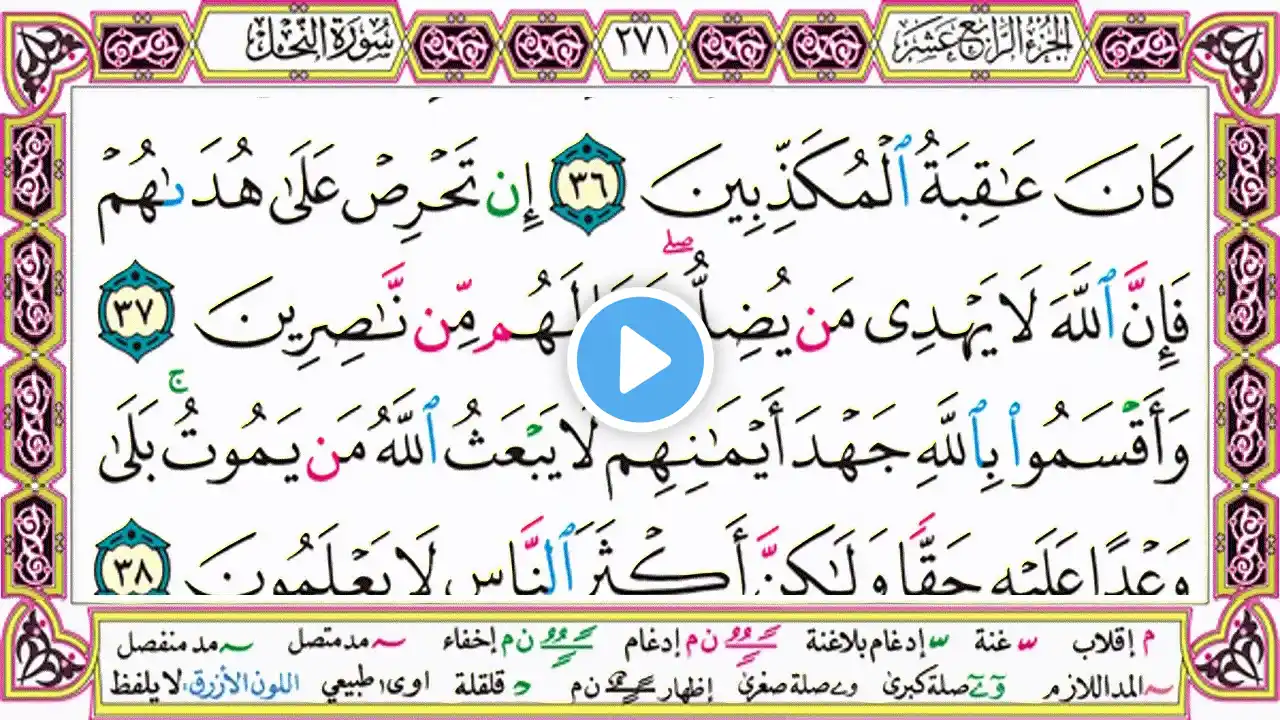 الجزء الرابع عشر ٢٧١ سورة النحل
كَانَ عَٰقِبَةُ ٱلْمُكَذِّبِينَ ٣٦ إِن تَحْرِصْ عَلَىٰ هُدَىٰهُمْ
فَإِنَّ ٱللَّهَ لَا يَهْدِى مَن يُضِلُّ ۖ لَهُم مِّن نَّٰصِرِينَ ٣٧
وَأَقْسَمُوا۟ بِٱللَّهِ جَهْدَ أَيْمَٰنِهِمْ لَا يَبْعَثُ ٱللَّهُ مَن يَمُوتُ ۚ بَلَىٰ
وَعْدًا عَلَيْهِ حَقًّا وَلَٰكِنَّ أَكْثَرَ ٱلنَّاسِ لَا يَعْلَمُونَ ٣٨
م إقلاب غنة إدغام بلاغنة ن م إدغام ن م إخفاء مد متصل مد منفصل
المد اللازم صلة كبرى صلة صغرى إظهار ن م قلقلة اوى طبيعي اللون الأزرق: لا يلفظ